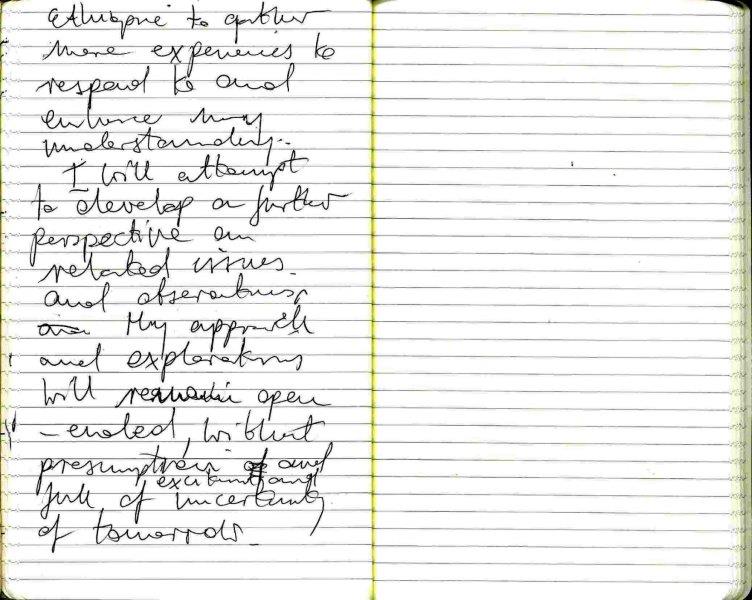 Ethiopia to gather
more experiences to
respond to and
enhance my
understanding..
I will attempt
to develop a further
perspective on
related issues
and observations.
My approach
and explorations
will remain open
-ended, without
presumption and
excitement and
full of uncertainty
of tomorrow.